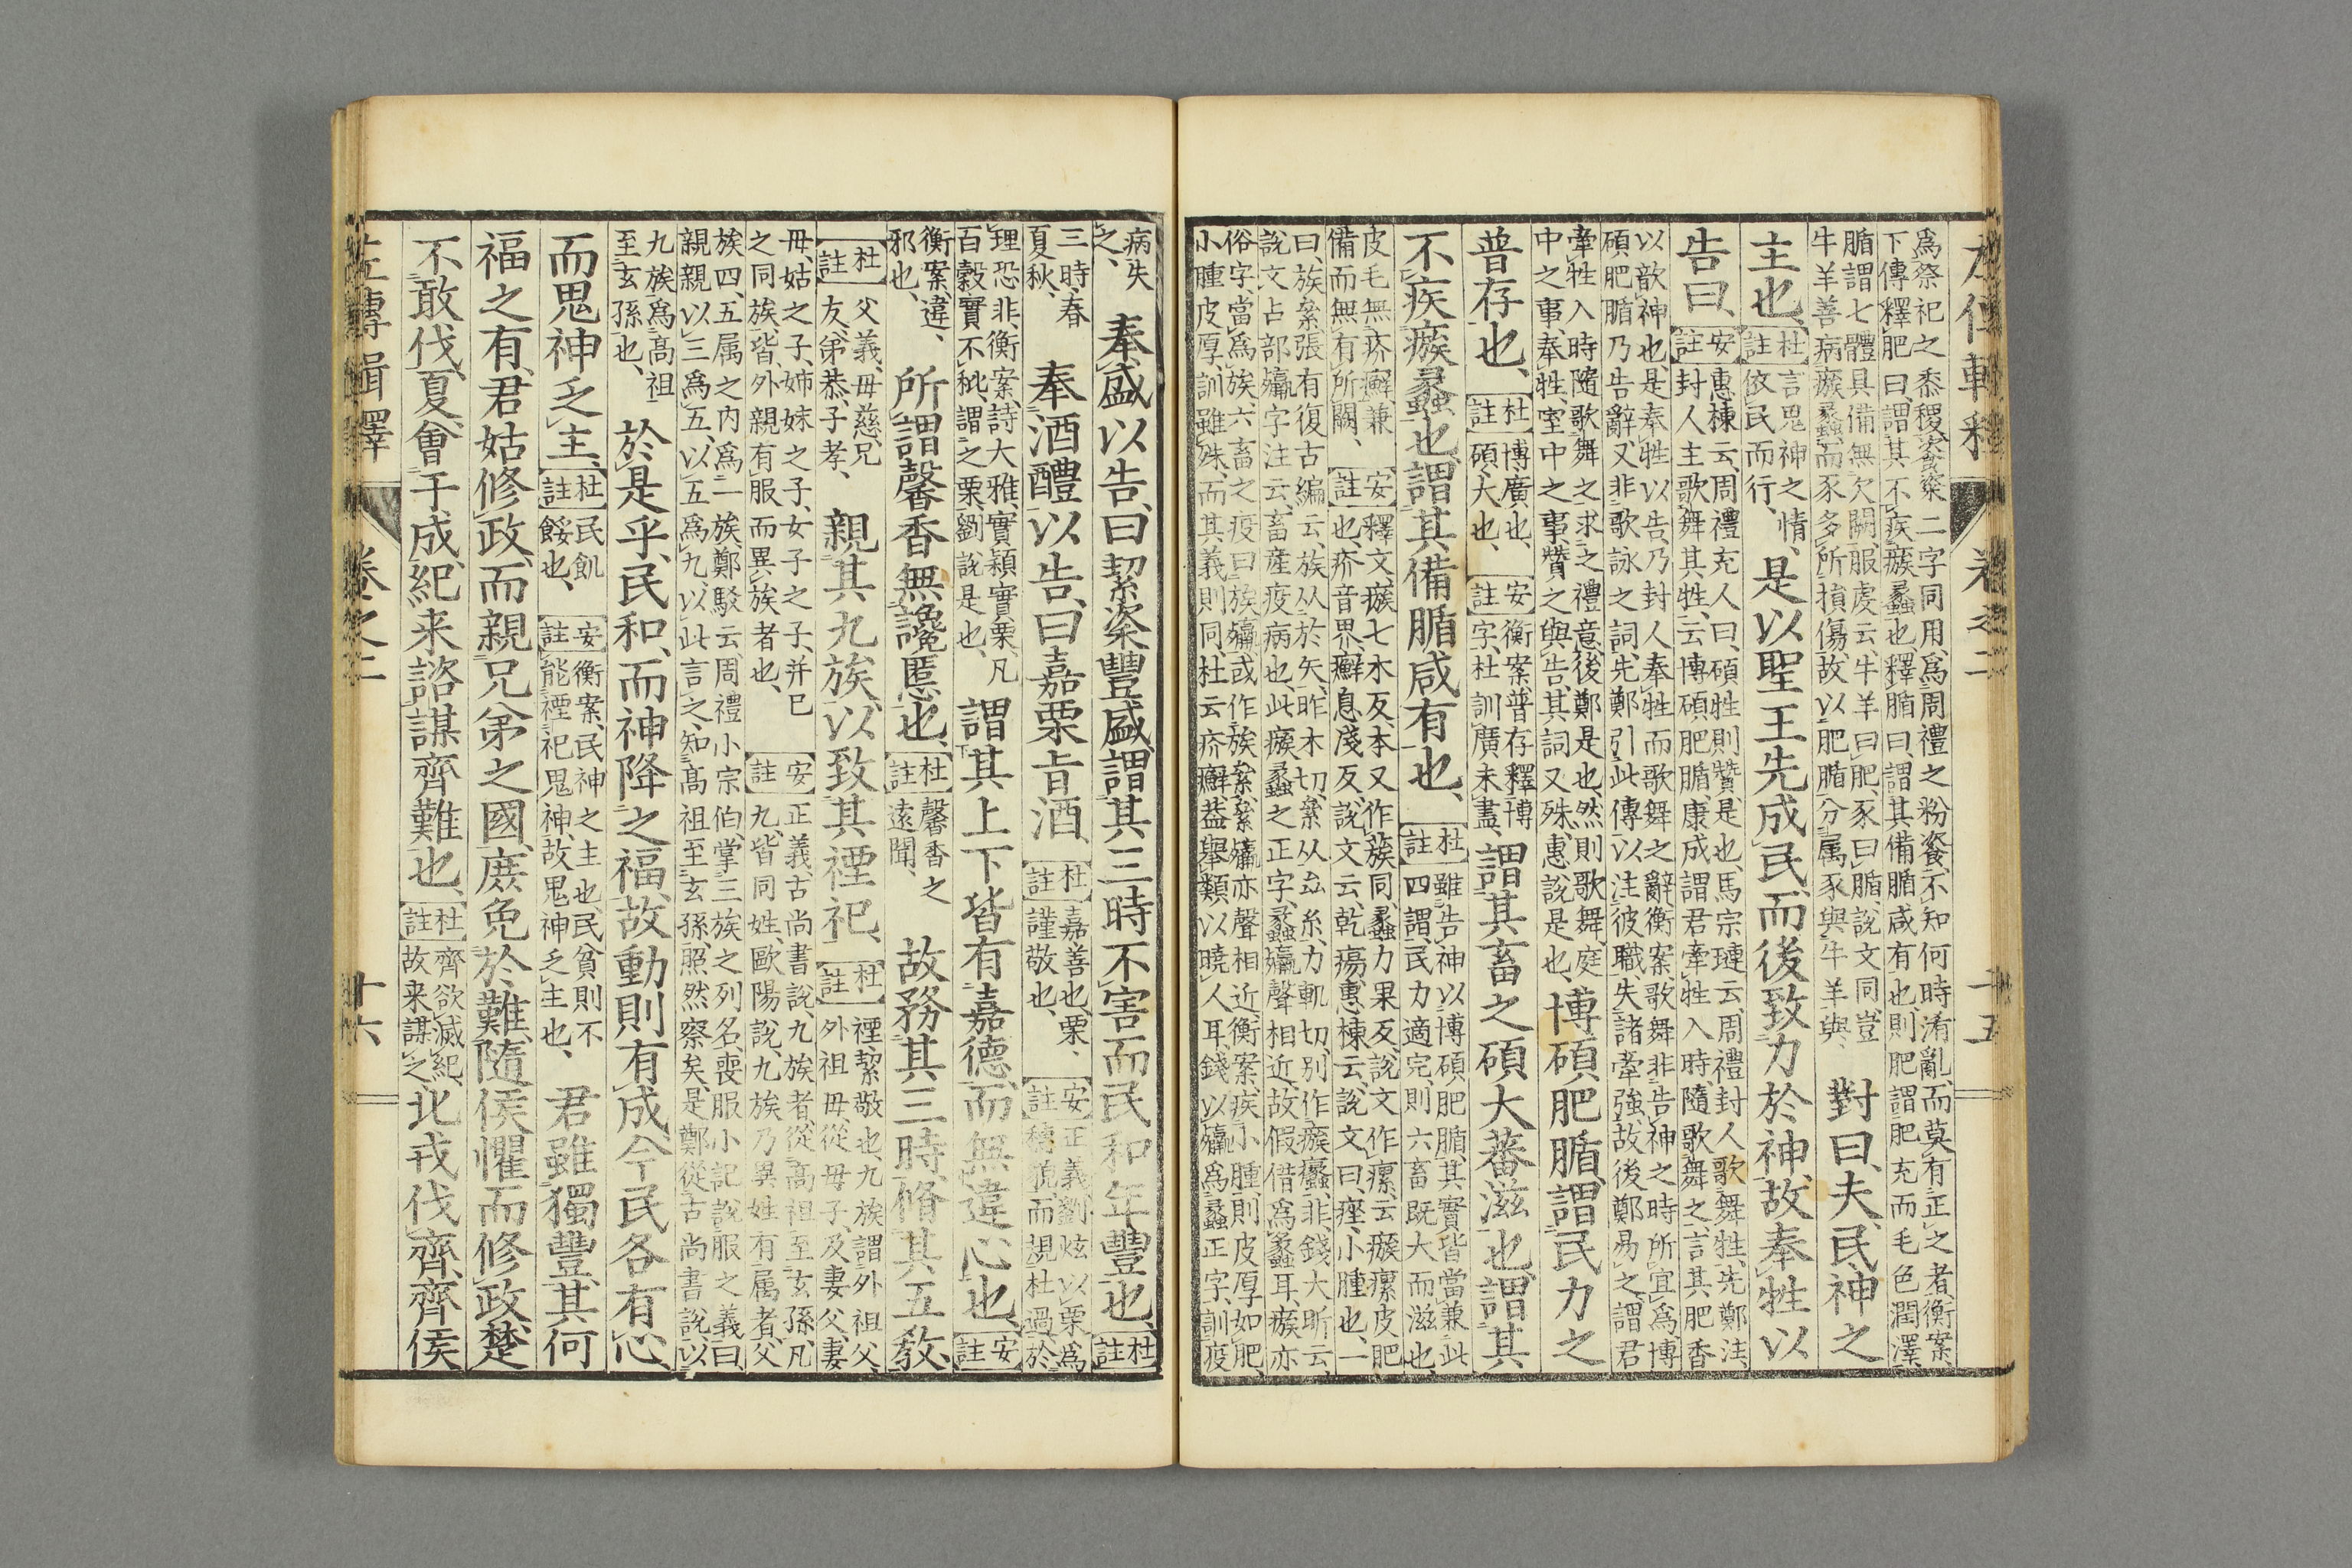 左傳輯釋 卷之二 十五
爲祭祀之黍稷粢粢二字同用爲周禮之粉餈不知何時淆亂而莫有正之者衡案
下傳釋肥曰謂其不疾瘯蠡也釋腯曰謂其備腯咸有也則肥謂肥充而毛色潤澤
腯謂七體具備無欠闕服虔云牛羊曰肥豕曰腯說文同豈
牛羊善病瘯蠡而豕多所損傷故以肥腯分属豕與牛羊與 對曰夫民神之
主也 杜註 言鬼神之情依民而行 是以聖王先成民而後致力於神故奉牲以
告曰 安註 惠棟云周禮充人曰碩牲則贊是也馬宗璉云周禮封人歌舞牲先鄭注
封人主歌舞其牲云博碩肥腯康成謂君牽牲入時隨歌舞之言其肥香
以歆神也是奉牲以告乃封人奉牲而歌舞之辭衡案歌舞非告神之時所宜爲博
碩肥腯乃告辭又非歌詠之詞先鄭引此傳以注彼職失諸牽強故後鄭易之謂君
牽牲入時隨歌舞之求之禮意後鄭是也然則歌舞庭
中之事奉牲室中之事贊之與告其詞又殊惠說是也 博碩肥腯謂民力之
普存也 杜註 博廣也碩大也 安註 衡案普存釋博字杜訓廣未盡 謂其畜之碩大蕃滋也謂其
不疾瘯蠡也謂其備腯咸有也 杜註 雖告神以博碩肥腯其實皆當兼此四謂民力適完則六畜既大而滋也
皮毛無疥癬兼
備而無有所闕 安註 釋文瘯七木反本又作蔟同蠡力果反說文作瘰云瘯瘰皮肥
也疥音界癬息淺反說文云乾瘍惠棟云說文曰痤小腫也一
曰族絫張有復古編云族从㫃从矢昨木切絫从厽糸力軌切别作瘯蠡非錢大昕云
說文占部㱻字注云畜産疫病也此瘯蠡之正字蠡㱻聲相近故假借爲蠡耳瘯亦
俗字當爲族六畜之疫曰族㱻或作族絫絫㱻亦聲相近衡案疾小腫則皮厚如肥
小腫皮厚訓雖殊而其義則同杜云疥癬蓋舉類以曉人耳錢以㱻爲蠡正字訓疫
病失之
奉盛以告曰絜粢豐盛謂其三時不害而民和年豐也 杜註
三時春夏秋 奉酒醴以告曰嘉栗旨酒 杜註 嘉善也栗謹敬也 安註 正義劉炫以栗爲穗貌而規杜過於
理恐非衡案詩大雅實穎實栗凡
百穀實不秕謂之栗劉說是也 謂其上下皆有嘉德而無違心也 安註
衡案違邪也 所謂馨香無讒慝也 杜註 馨香之遠聞 故務其三時脩其五敎
杜註 父義母慈兄友弟恭子孝 親其九族以致其禋祀 杜註 禋絜敬也九族謂外祖父外祖母從母子及妻父妻
母姑之子姉妹之子女子之子并己
之同族皆外親有服而異族者也 安註 正義古尚書說九族者從高祖至玄孫凡
九皆同姓歐陽說九族乃異姓有属者父
族四五属之内爲一族鄭駁云周禮小宗伯掌三族之列名喪服小記說服之義曰
親親以三爲五以五爲九以此言之知高祖至玄孫照然察矣是鄭從古尚書說以
九族爲高祖至玄孫也 於是乎民和而神降之福故動則有成今民各有心
而鬼神乏主 杜註 民飢餒也 安註 衡案民神之主也民貧則不能禋祀鬼神故鬼神乏主也 君雖獨豐其何
福之有君姑修政而親兄弟之國庶免於難隨侯懼而修政楚
不敢伐夏會于成紀来諮謀齊難也 杜註 齊欲滅紀故来謀之 北戎伐齊齊侯
左傳輯釋 卷之二 十六